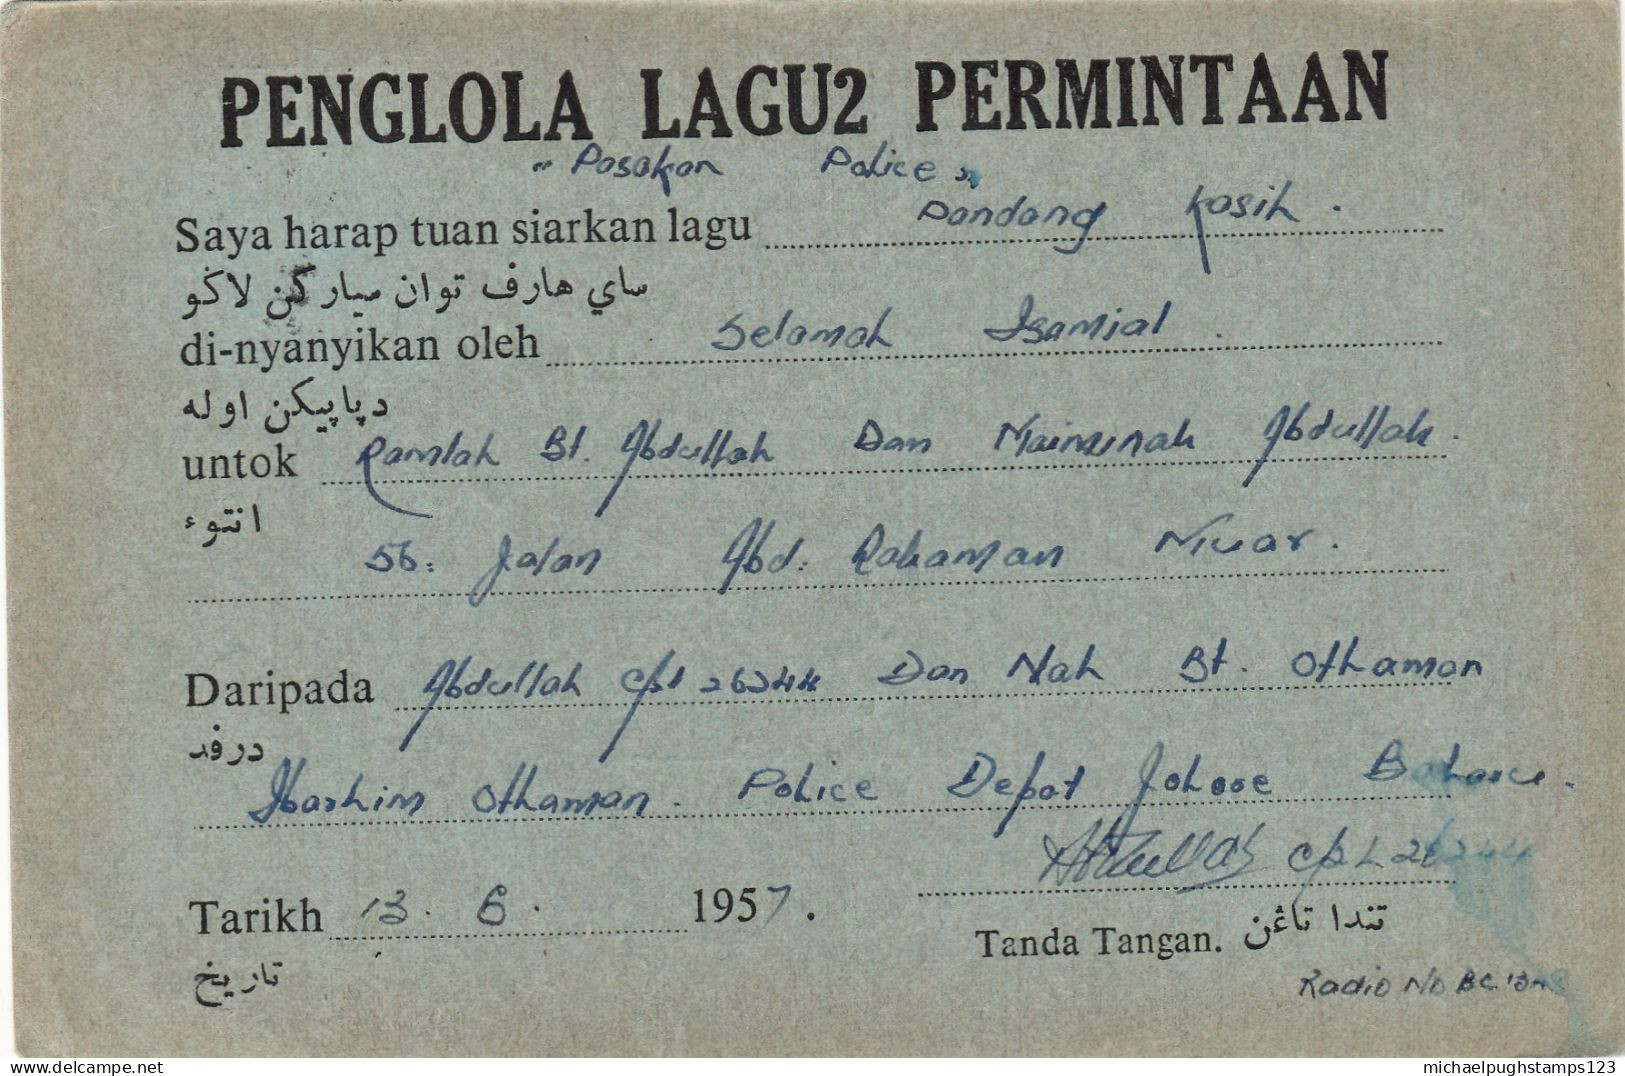 PENGLOLA LAGU2 PERMINTAAN
" Pasokan Police "
Saya harap tuan siarkan lagu Dondang Kasih .
ساي هارف توان سياركن لاݢو
di-nyanyikan oleh Selamah
دپاپيكن اوله
untok Ramlah Bt. Abdullah Dan Maimunah Abdullah.
انتوء
56: Jalan Abd: Rahaman Muar.
Daripada Abdullah Cpl 26244 Dan Mah Bt. Othaman
درفد
Othaman. Police Depot Johore Baharu.
Abdullah Cpl 26244
Tarikh 13. 6. 1957.
تاريخ
Tanda Tangan. تندا تاڠن
Radio No BC
michaelpughstamps123